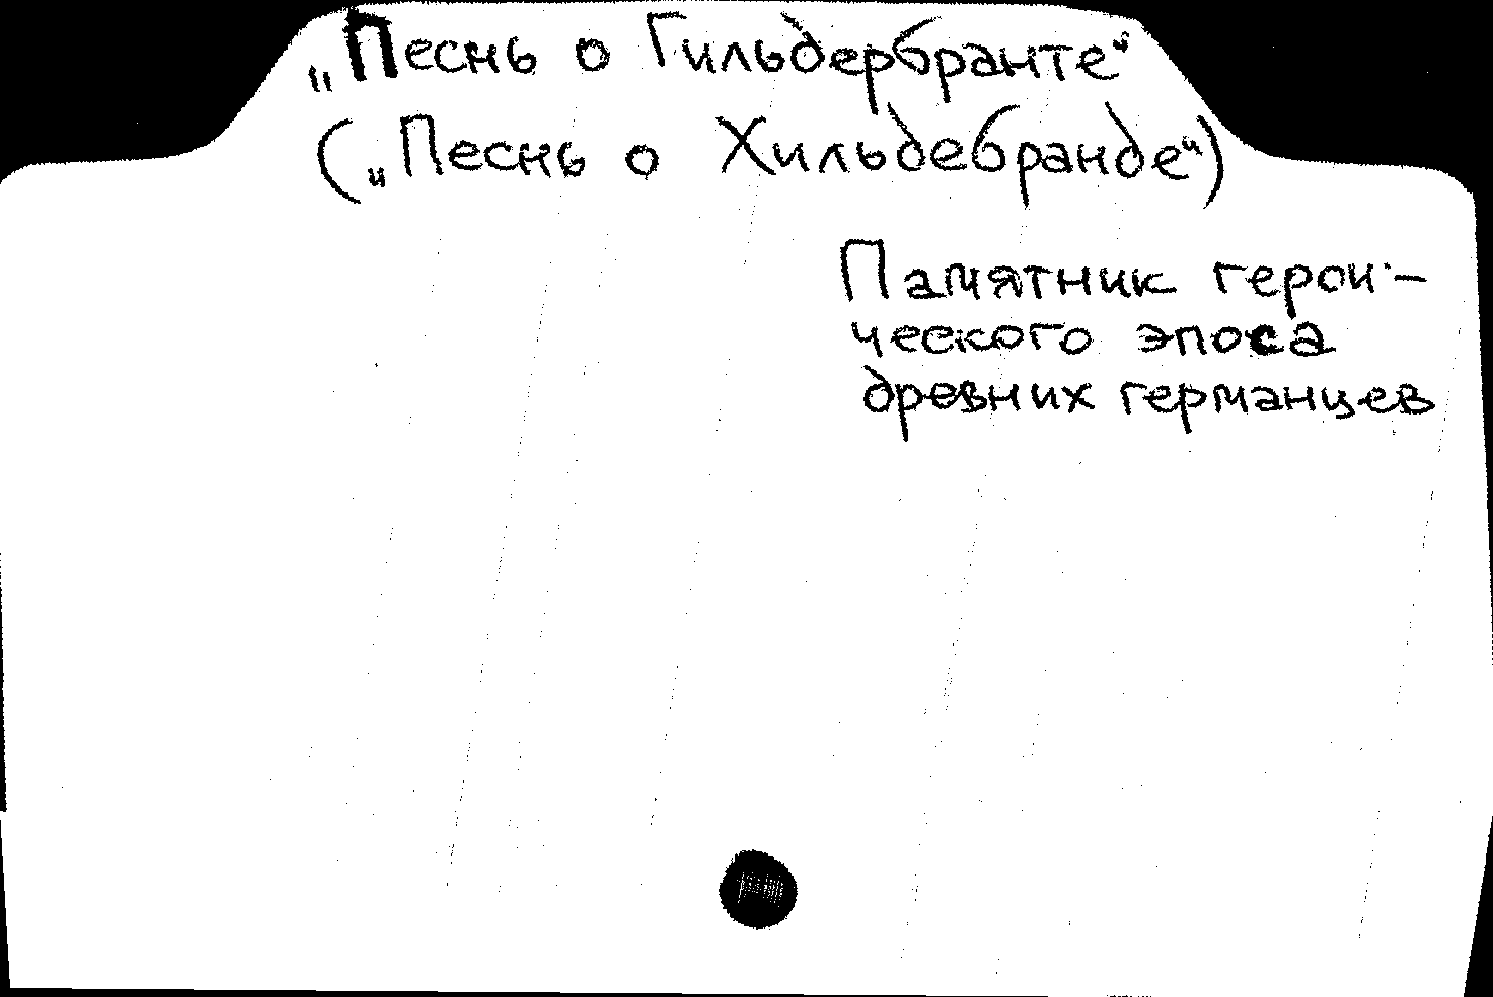 „Песнь о Гильдербранте“
(„Песнь о Хильдебранде“)
Памятник герои-
ческого эпоса
древних германцев